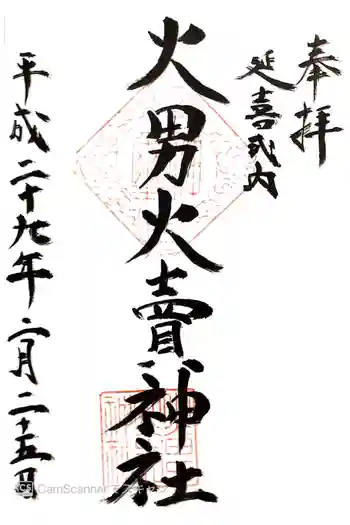 奉拝
延喜式内
火男火賣神社
平成二十九年二月二十五日
CamScanner